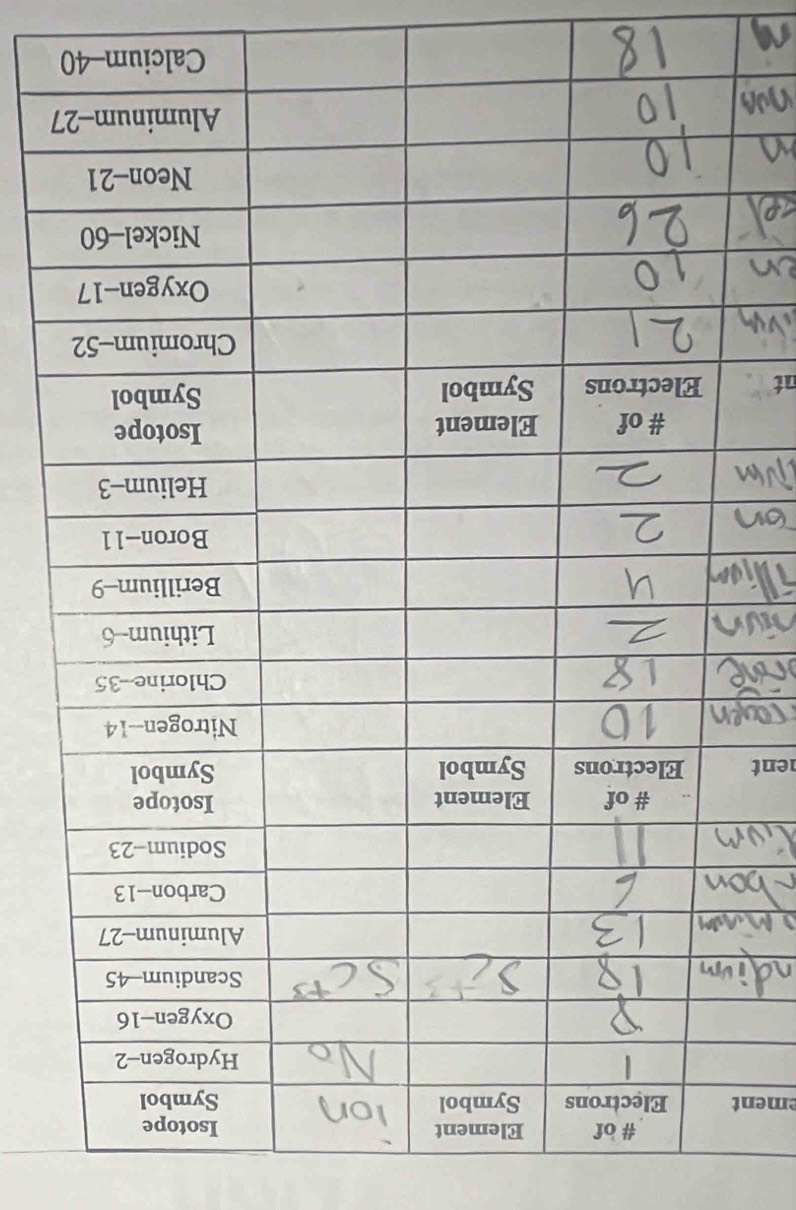 ement # of Electrons Element Symbol ion Isotope Symbol
1 No Hydrogen–2
8 Oxygen–16
ndium 18 Sc+3 Sc+3 Scandium–45
13 Aluminum–27
rbon 6 Carbon–13
dium 11 Sodium–23
ent # of Electrons Element Symbol Isotope Symbol
rogen 10 Nitrogen–14
orine 18 Chlorine–35
hium 2 Lithium–6
illium 4 Berillium–9
ron 2 Boron–11
lium 2 Helium–3
nt # of Electrons Element Symbol Isotope Symbol
ium 21 Chromium–52
en 10 Oxygen–17
kel 26 Nickel–60
on 10 Neon–21
num 10 Aluminum–27
m 18 Calcium–40